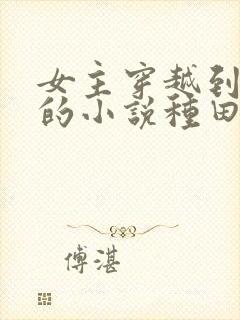 女主穿越到
的小說種田
傅湛